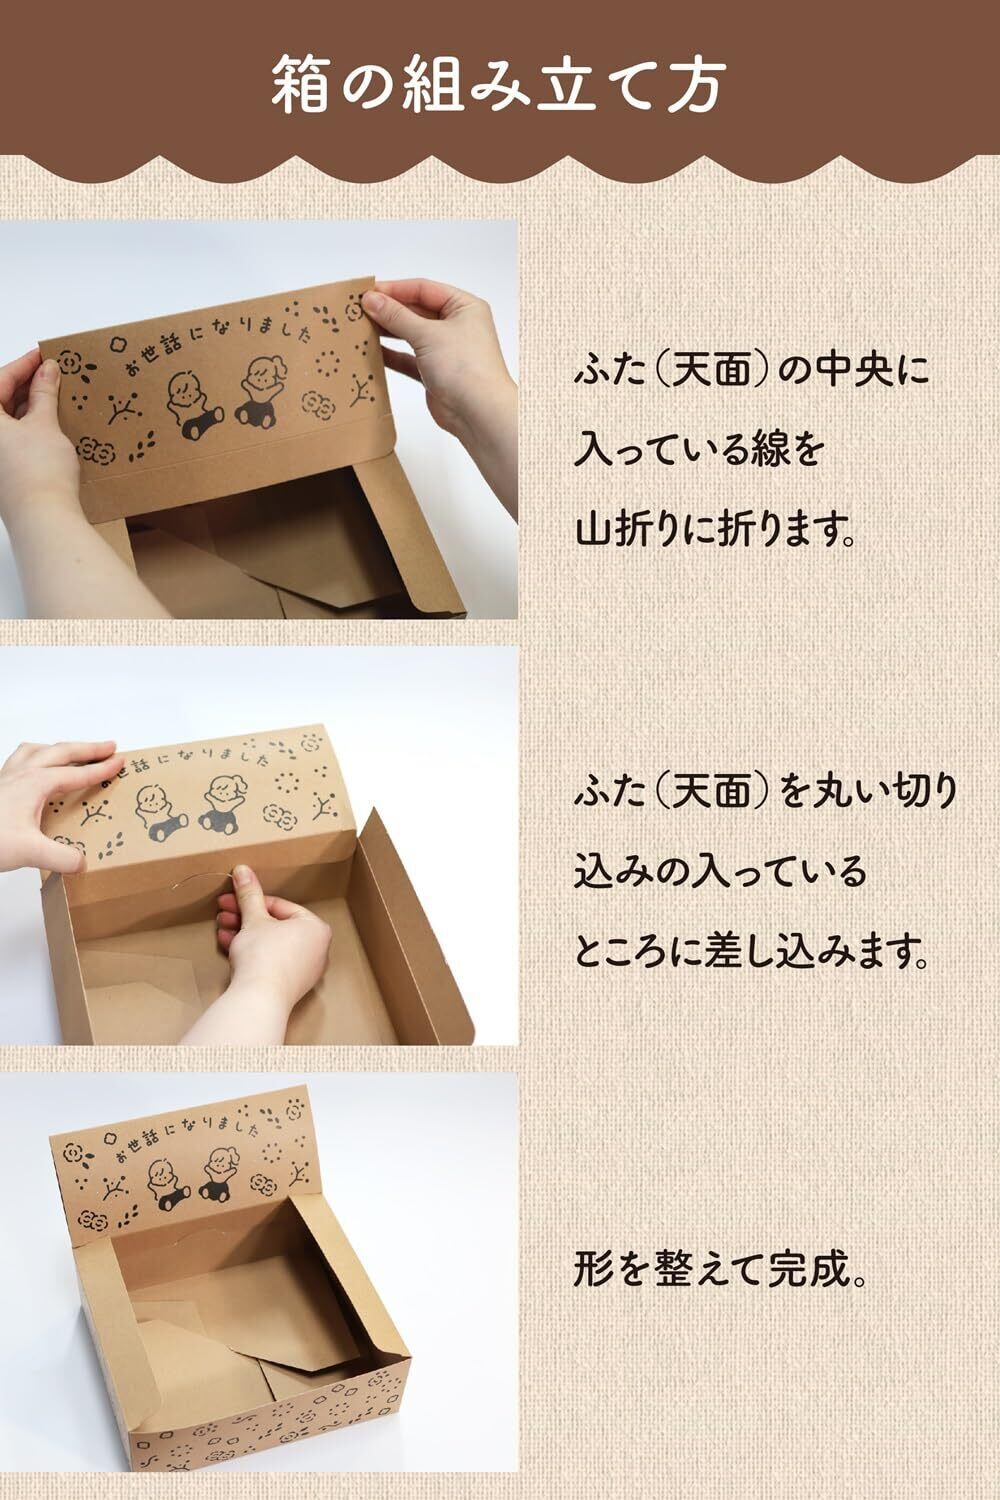 箱の組み立て方
お世話になりました
ふた（天面）の中央に
入っている線を
山折りに折ります。
お世話になりました
ふた（天面）を丸い切り
込みの入っている
ところに差し込みます。
お世話になりました
形を整えて完成。